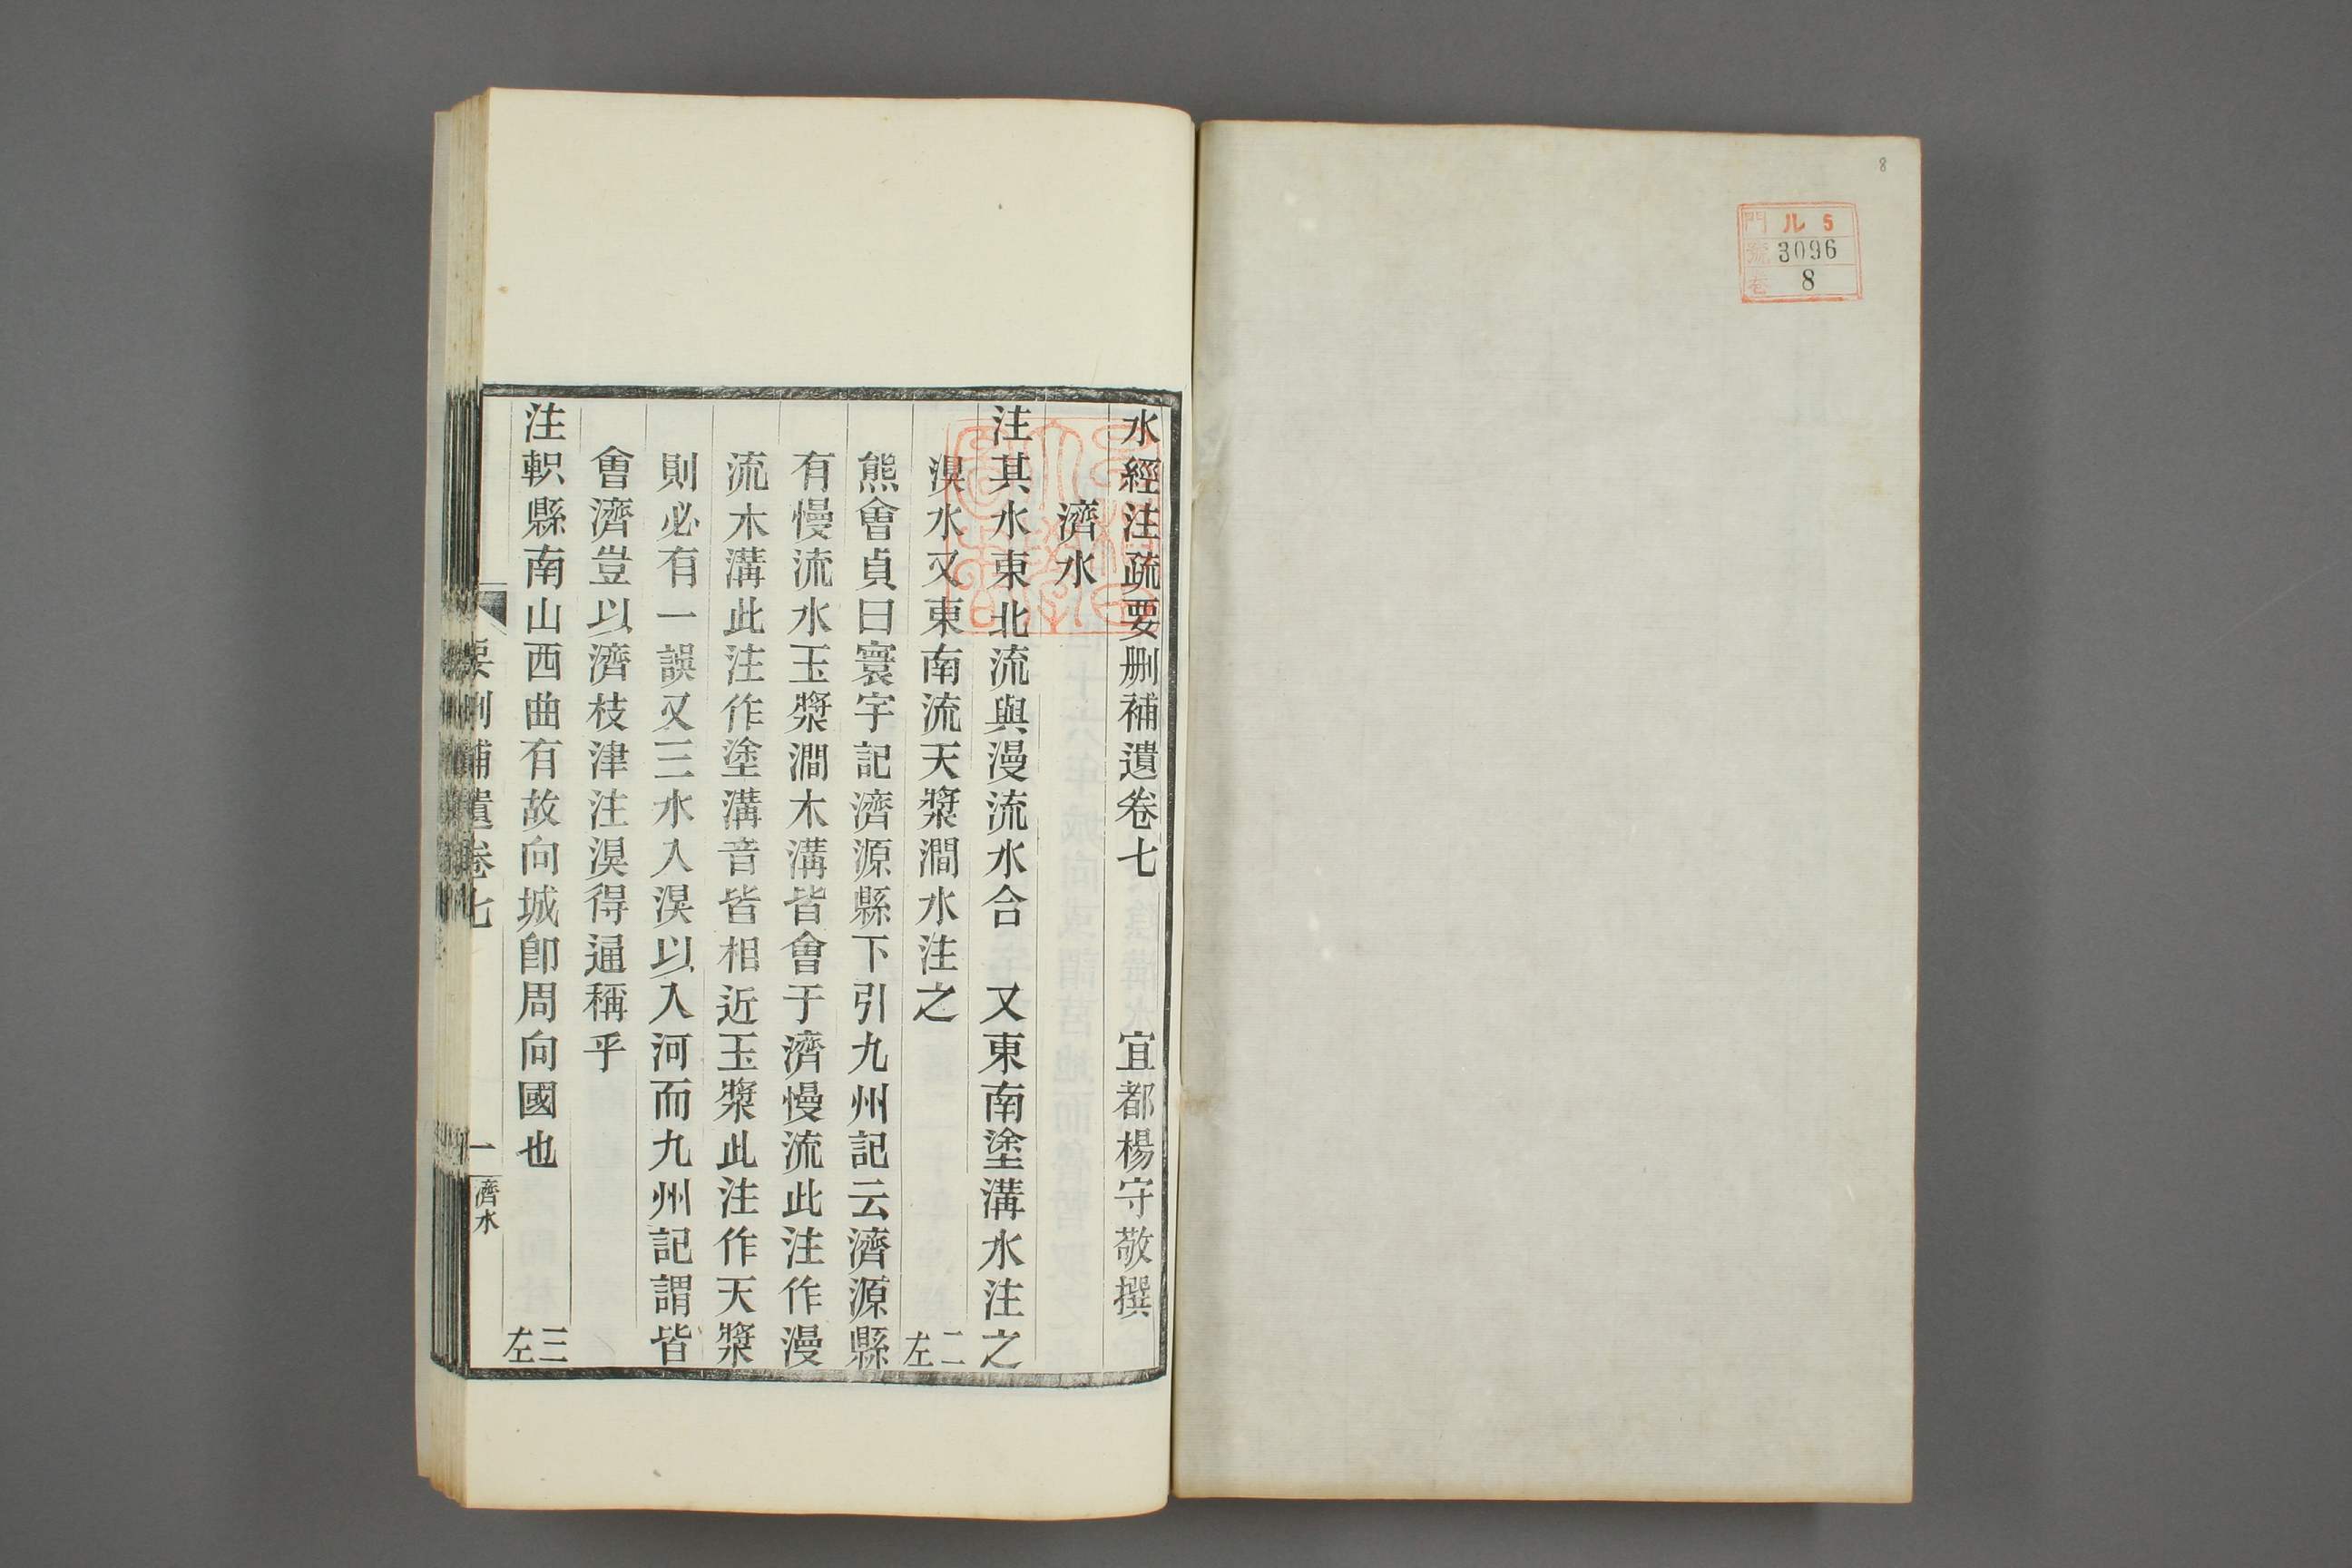 8
門 ル 5
號 3096
卷 8
水經注疏要删補遺卷七 宜都楊守敬撰
濟水
注其水東北流與漫流水合 又東南塗溝水注之
湨水又東南流天漿澗水注之 二左
熊會貞曰寰宇記濟源縣下引九州記云濟源縣
有慢流水玉漿澗木溝皆會于濟慢流此注作漫
流木溝此注作塗溝音皆相近玉漿此注作天漿
則必有一誤又三水入湨以入河而九州記謂皆
會濟豈以濟枝津注湨得通稱乎
注軹縣南山西曲有故向城卽周向國也 三左
要删補遺卷七 一 濟水